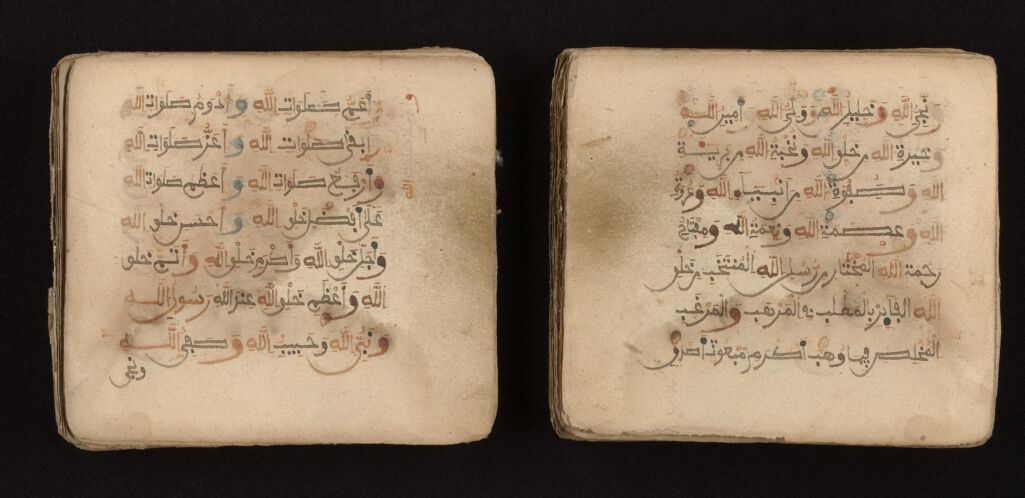 و أعم صلوات الله و أدوم صلوات الله
و أبقى صلوات الله و أعز صلوات الله
و أرفع صلوات الله و أعظم صلوات الله
على أفضل خلق الله و أحسن خلق الله
وأجل خلق الله وأكرم خلق الله وأتم خلق
الله وأعظم خلق الله عند الله رسول الله
ونبي الله وحبيب الله وصفي الله
ونجي
ونجي الله وخليل الله وولي الله وأمين الله
وخيرة الله من خلق الله ونخبة الله من برية
الله وصفوة الله من أنبياء الله وعروة
الله وعصمة الله ونعمة الله ومفتاح
رحمة الله المختار من رسل الله المنتخب من خلق
الله الفايز بالمطلب في المرهب والمرغب
المخلص فيما وهب أكرم مبعوث أصدق